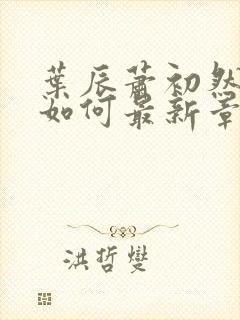 葉辰蕭初然
如何最新章
洪哲燮